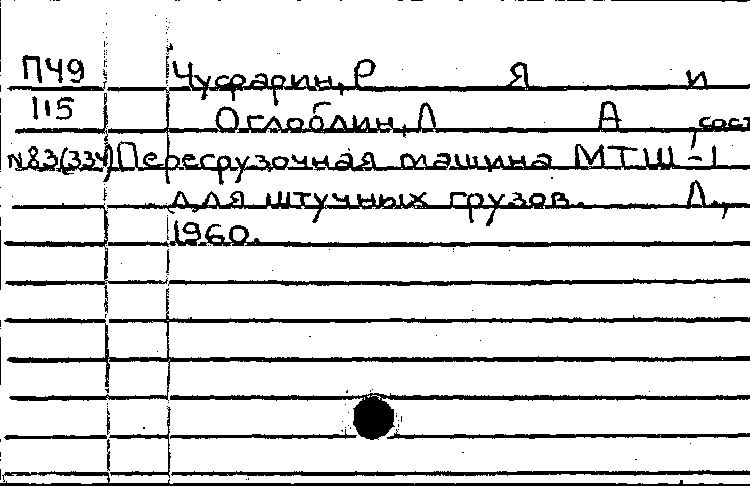 П49 Чусфарин, Р Я и
115 Оглоблин, Л А, сост
№83(334) Перегрузочная машина МТШ-1
для штучных грузов. Л.,
1960.